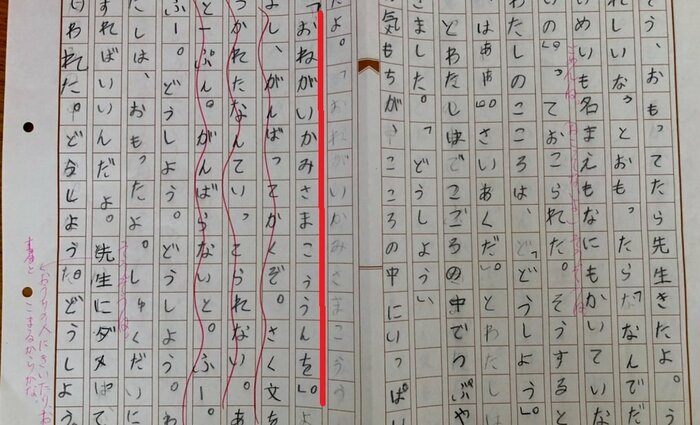 そう、おもってたら先生きたよ。
れしいな。」とおもったら「なんでだ
いめいも名まえもなにもかいていな
いの」っておこられた。そうすると
わたしのこころは、「どうしよう」。
「はぁぁ」。さいあくだ。」とわたしは
とわたしはでこころの中でつぶや
きました。「どうしよう、
気もちが、こころの中にいっぱい
だよ。「おねがいかみさまこうう
「おねがいかみさまこううんを」。よ
よし、がんばってかくぞ。さく文を
つかれたなんていってられない。あ
と一ぷん。がんばらないと。ふー。
ふー。どうしよう。どうしよう。わ
たしは、おもったよ。しゅくだいに
すればいいんだよ。先生にダメ
いわれた。どうしようた。どうしよう
おうちの人にきいたりお
こまるからかな。